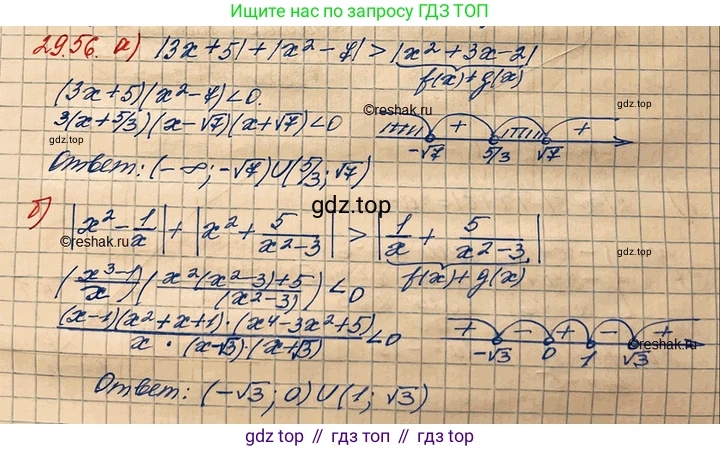 Ищите нас по запросу ГДЗ ТОП
29.56. а) |3x+5|+|x²-7|>|x²+3x-2|
f(x)+g(x)
(3x+5)(x²-7)<0.
©reshak.ru
gdz.top
3(x+5/3)(x-√7)(x+√7)<0
+ +
-√7 5/3 √7
gdz.top
Ответ: (-∞; -√7)∪(5/3; √7)
gdz.top
б) |x²-1/x|+|x²+5/(x²-3)|>|1/x+5/(x²-3)|
©reshak.ru
©reshak.ru
f(x)+g(x)
((x³-1)/x)((x²(x²-3)+5)/(x²-3))<0
gdz.top
(x-1)(x²+x+1)·(x⁴-3x²+5)/(x·(x-√3)·(x+√3))<0
+ - + - +
-√3 0 1 √3
©reshak.ru
Ответ: (-√3; 0)∪(1; √3)
gdz.top // гдз.топ // gdz.top // гдз.топ